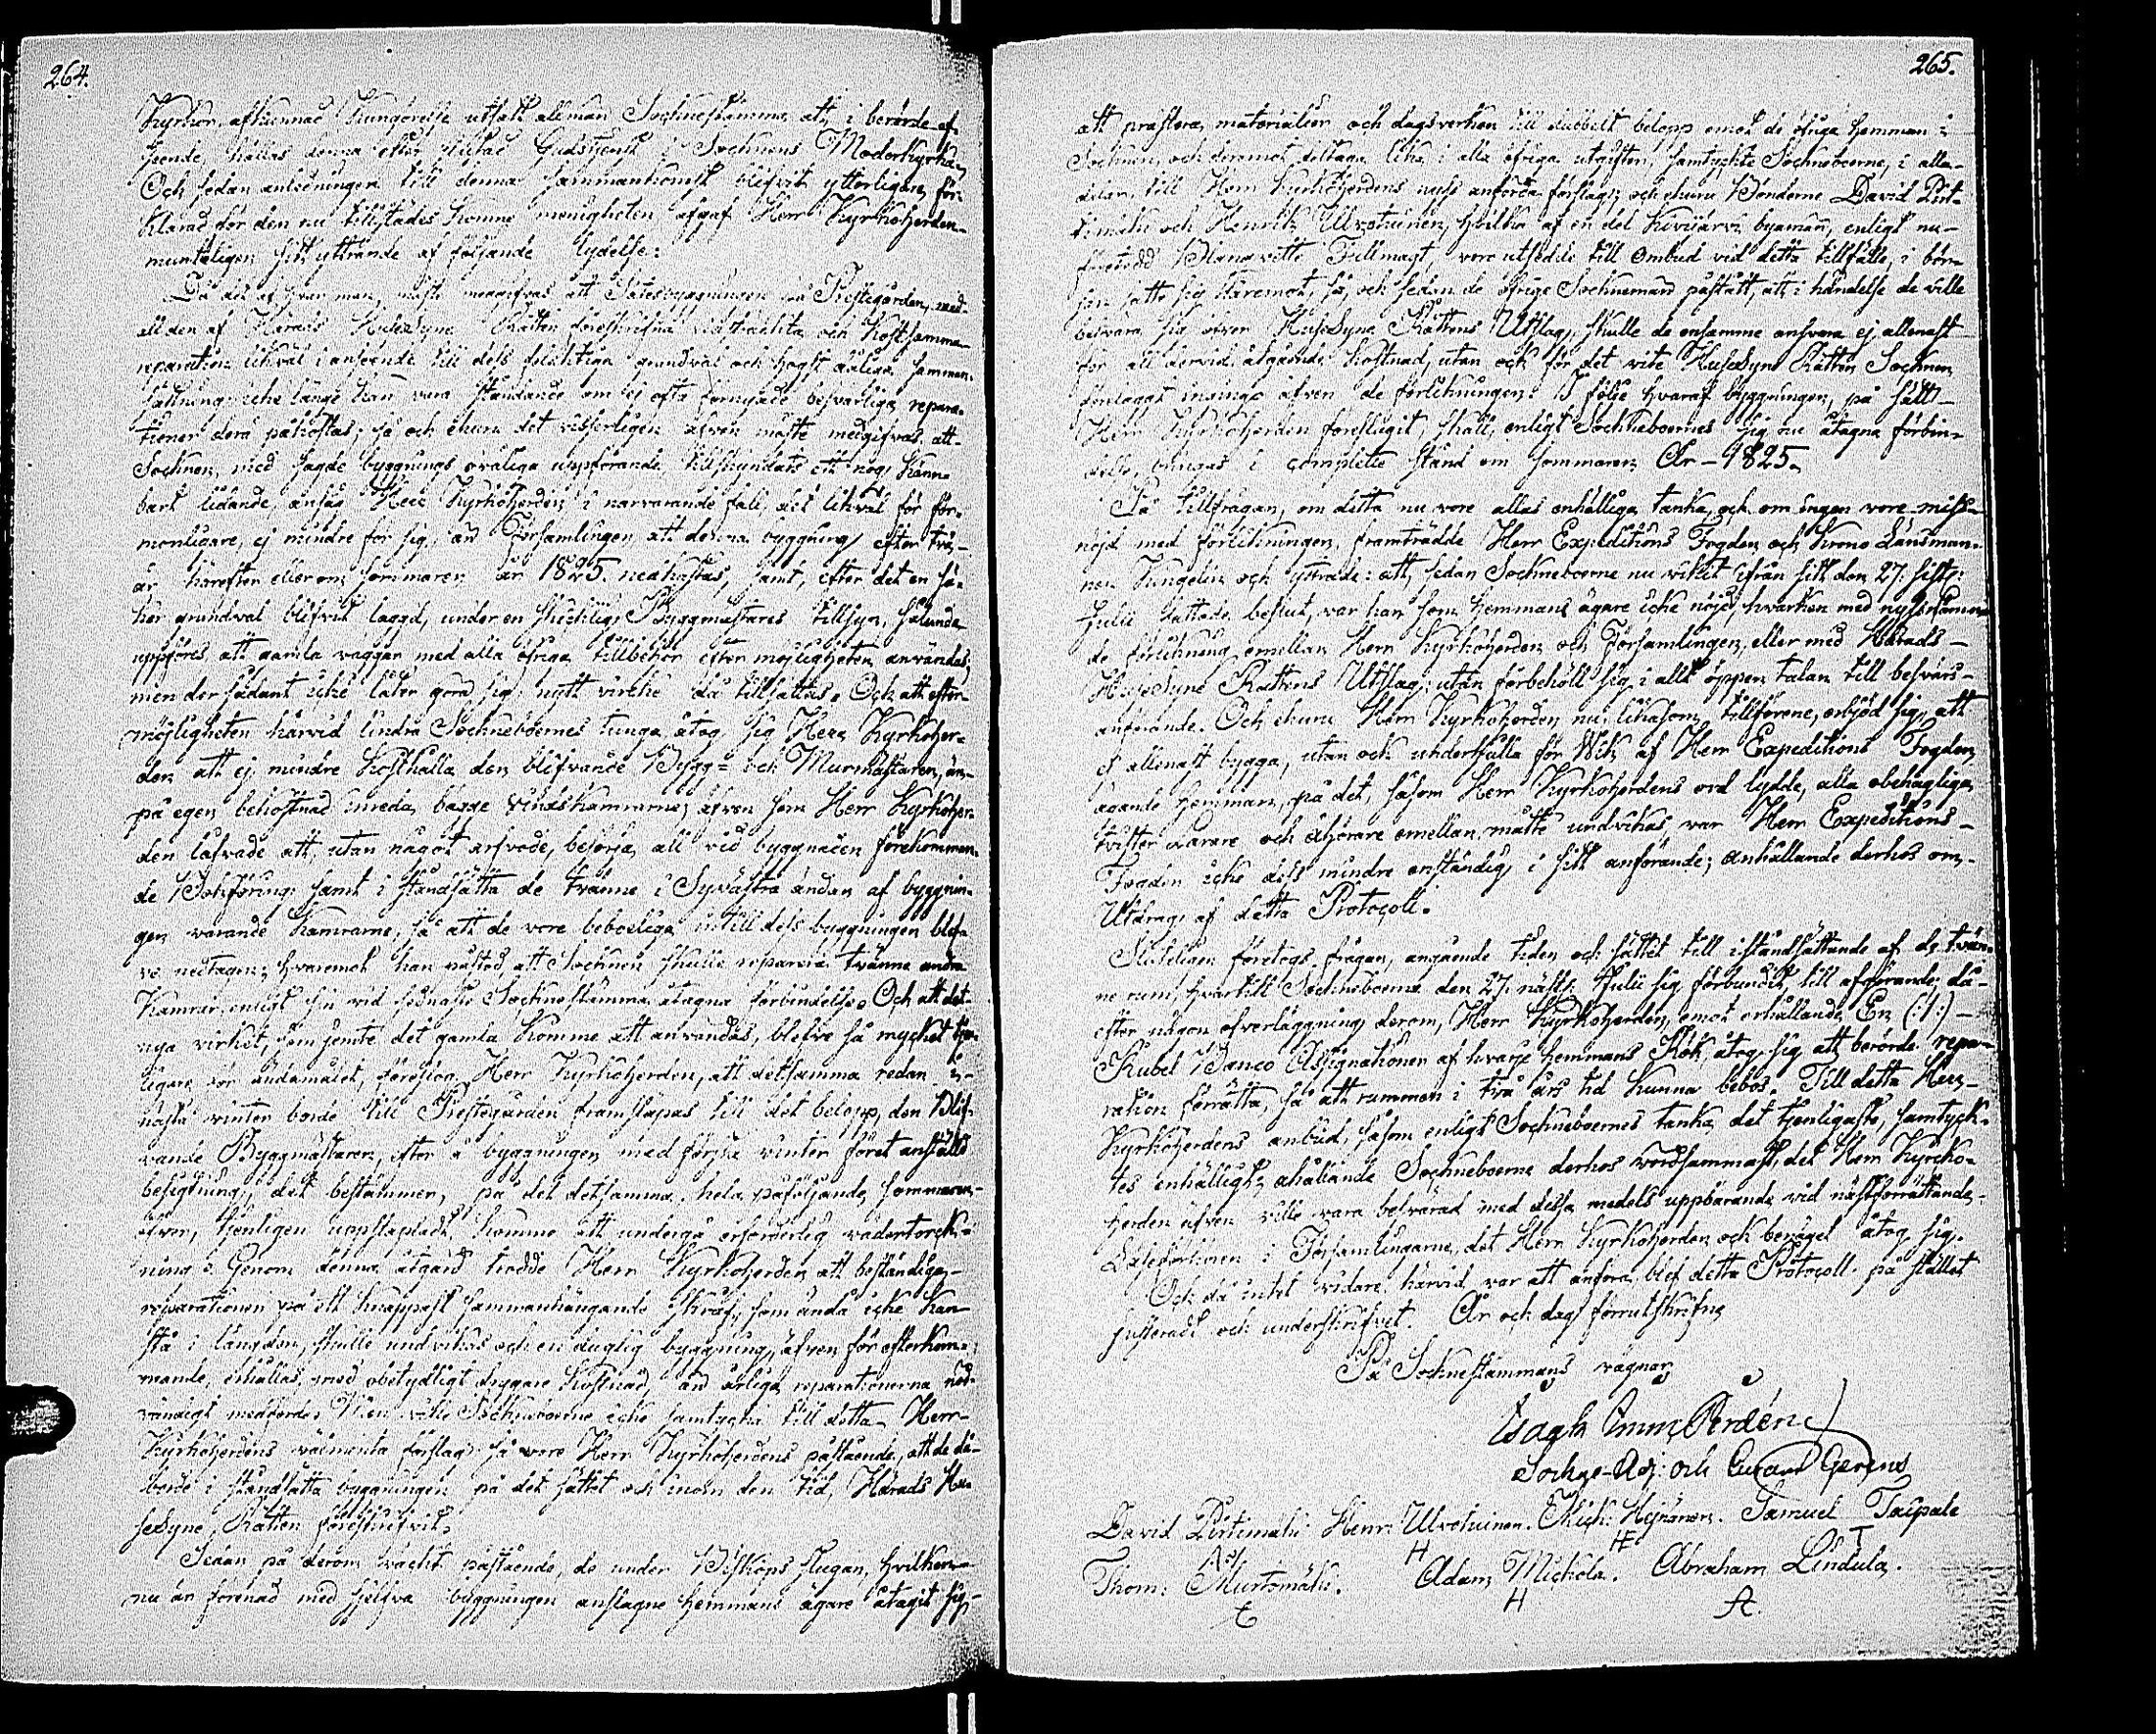 264.
Kyrkor afkunnad Kungörelse utsatt allmän Sockнestämma att i berörde af-
seende hållas denna efter slutad Gudstjenst i Socknens Moderkyrka,
Och sedan anledningen till denna sammankomst blifvit ytterligare för-
klarad för den nu tillstädes komne menigheten afgaf Herr Kyrkoherden
munteligen sitt yttrande af följande lydelse:
Då det af hvar man måste medgifvas att Sätesbyggningen på Prestegården, med
all den af Härads HuseSyns Rätten föreskrifna vidsträckta och kostsamma
reparation likväl i anseende till dess grundval och högst dåliga samman-
sättning icke länge kan vara ståndande om ej ofta förnyade besvärliga repara-
tioner derå påkostas; så och ehuru det visserligen äfven måste medgifvas att
Socknen, med sagde byggnings uppförande tillskyndats ett nog känn-
bart lidande, ansåg Herr Kyrkoherden i närvarande fall det likväl för för-
monligare, ej mindre för sig, än Församlingen att denna byggning efter två
år härefter eller om sommaren år 1825. nedhastas, samt, efter det en sä-
ker grundval blifvit laggd, under en skicklig Byggmästares tillsyn, sålunda
uppföres att gamla väggar med alla öfriga tillbehör efter möjligheten användas,
men der sådant icke låter göra sig, nytt virke då tillsättas. Och att efter
möjligheten härvid lindra Sockneboernes tunga åtog sig Herr Kyrkoher-
den att ej mindre kosthålla den blifvande Bygg- och Murmästaren, än
på egen bekostnad inreda bägge vindskamrarne, äfven som Herr Kyrkoher-
den låfvade att, utan något arfvode, besörja all vid byggnaden förekomman-
de Bokföring; samt i ståndsätta de tvänne i Sydvästra ändan af byggnin-
gen varande Kamrarne, så att de vore beboeliga intill dess byggningen blef-
ve nedtagen; hvaremot han påstod, att Socknen skulle reparera tvänne andra
Kamrar, enligt sin vid sednaste Sockнestämma åtagna förbindelse. Och att det
nya virket, som jemte det gamla komme att användas, blefve så mycket tjen-
ligare för ändamålet, föreslog Herr Kyrkoherden, att detsamma redan i
nästa vinter borde till Prestegården framsläpas till det belopp, den Blif-
vande Byggmästaren, efter å byggningen med första vinter föret anställd
besigtning, det bestämmer, på det detsamma, hela påföljande sommaren
öfver, tjenligen uppstapladt komme att undergå erforderlig vädertork-
ning. Genom denna åtgärd trodde Herr Kyrkoherden att beständiga
reparationer på ett knappast sammanhängande skraf, som ändå icke kan
stå i längden, skulle undvikas och en duglig byggning, äfven för efterkom-
mande, erhållas, med obetydligt drygare kostnad, än årliga reparationerna nöd-
vändigt medförde. Men ville Sockneboerne icke samtycka till detta Herr
Kyrkoherdens välmenta förslag, så vore Herr Kyrkoherdens påstående, att de då
borde i ståndsätta byggningen på det sättet och inom den tid, Härads Hu-
seSyns Rätten föreskrifvit.
Sedan på derom väckt påstående, de under Biskops stugan, hvilken
nu är förenad med sjelfva byggningen anslagne hemmans ägare åtagit sig
265.
att præstera materialier och dagsverken till dubbelt belopp emot de öfriga hemman i
Socknen, och deremot deltaga lika i alla öfriga utgifter, samtyckte Sockneboerne, i alla
delar, till Herr Kyrkoherdens nyss anförda förslag; och ehuru Bönderne David Pirt-
timäki och Henrik Ulvotuinen, hvilka af en del Kivijärvi byamän, enligt nu
företedd Bevittnad Fullmagt, vore utsedde till ombud vid detta tillfälle, i bör-
jan satte sig däremot, så, och sedan de öfrige Socknemän påstått, att i händelse de ville
besvära sig öfver HuseSyns Rättens Utslag, skulle de ensamme ansvara ej allenast
för all dervid åtgående kostnad, utan ock för det vite HuseSyns Rätten Socknen
förelagt, ingingo äfven de förlikningen. I följe hvaraf byggningen, på sätt
Herr Kyrkoherden föreslagit skall, enligt Sockneboernes sig nu åtagna förbin-
delse, bringas i complette stånd om sommaren År 1825.
På tillfrågan, om detta nu vore allas enhälliga tanka, och om ingen vore miss-
nöjd med förlikningen, framträdde Herr Expeditions Fogden och Krono Länsman-
nen Jungelin och yttrade: att, sedan Sockneboerne nu vikit ifrån sitt den 27. sistl:
Julii fattade beslut, var han som hemmans ägare icke nöjd, hvarken med nyssnämn-
de förlikning emellan Herr Kyrkoherden och Församlingen, eller med Härads
HuseSyns Rättens Utslag; utan förbehöll sig i allt öppen talan till besvärs
anförande. Och ehuru Herr Kyrkoherden nu, likasom tillförene, erbjöd sig, att
ej allenast bygga, utan och underhålla för Wite af Herr Expeditions Fogden
ägande hemman, på det, såsom Herr Kyrkoherdens ord lydde, alla obehagliga
tvister Lärare och åhörare emellan måtte undvikas, var Herr Expeditions
Fogden icke dess mindre enständig i sitt anförande; anhållande derhos om
Utdrag af detta Protocoll.
Slutligen företogs frågan, angående tiden och sättet till iståndsättande af de tvän-
ne rum, hvartill Sockneboerne den 27. nästl. Julii sig förbundit, till afgörande, då
efter någon öfverläggning derom, Herr Kyrkoherden, emot erhållande En (:1:)
Rubel Banco Assignationer af hvarje hemmans Rök, åtog sig att berörde repa-
ration förrätta, så att rummen i två års tid kunna bebos. Till detta Herr
Kyrkoherdens anbud, såsom enligt Sockneboernes tanka det tjenligaste, samtyck-
tes enhälligt; anhållande Sockneboerne derhos vördsammast, det Herr Kyrko-
herden äfven ville vara besvärad med dessa medels uppbärande vid nästförrättande
Läseförhören i Församlingarne, det Herr Kyrkoherden och benäget åtog sig.
Och då intet vidare härvid var att anföra, blef detta Protocoll på stället
justeradt och underskrifvet. År och dag förrutskrifne
På Sockнestämmans vägnar
Isach Imm. Perdén
Sockne-Adj: och Curam Gerens
David Pirttimäki. Henr: Ulvotuinen. Mich: Hejnänen. Samuel Taipale
Thom: Murtomäki. Adam Mickola. Abraham Lindula.